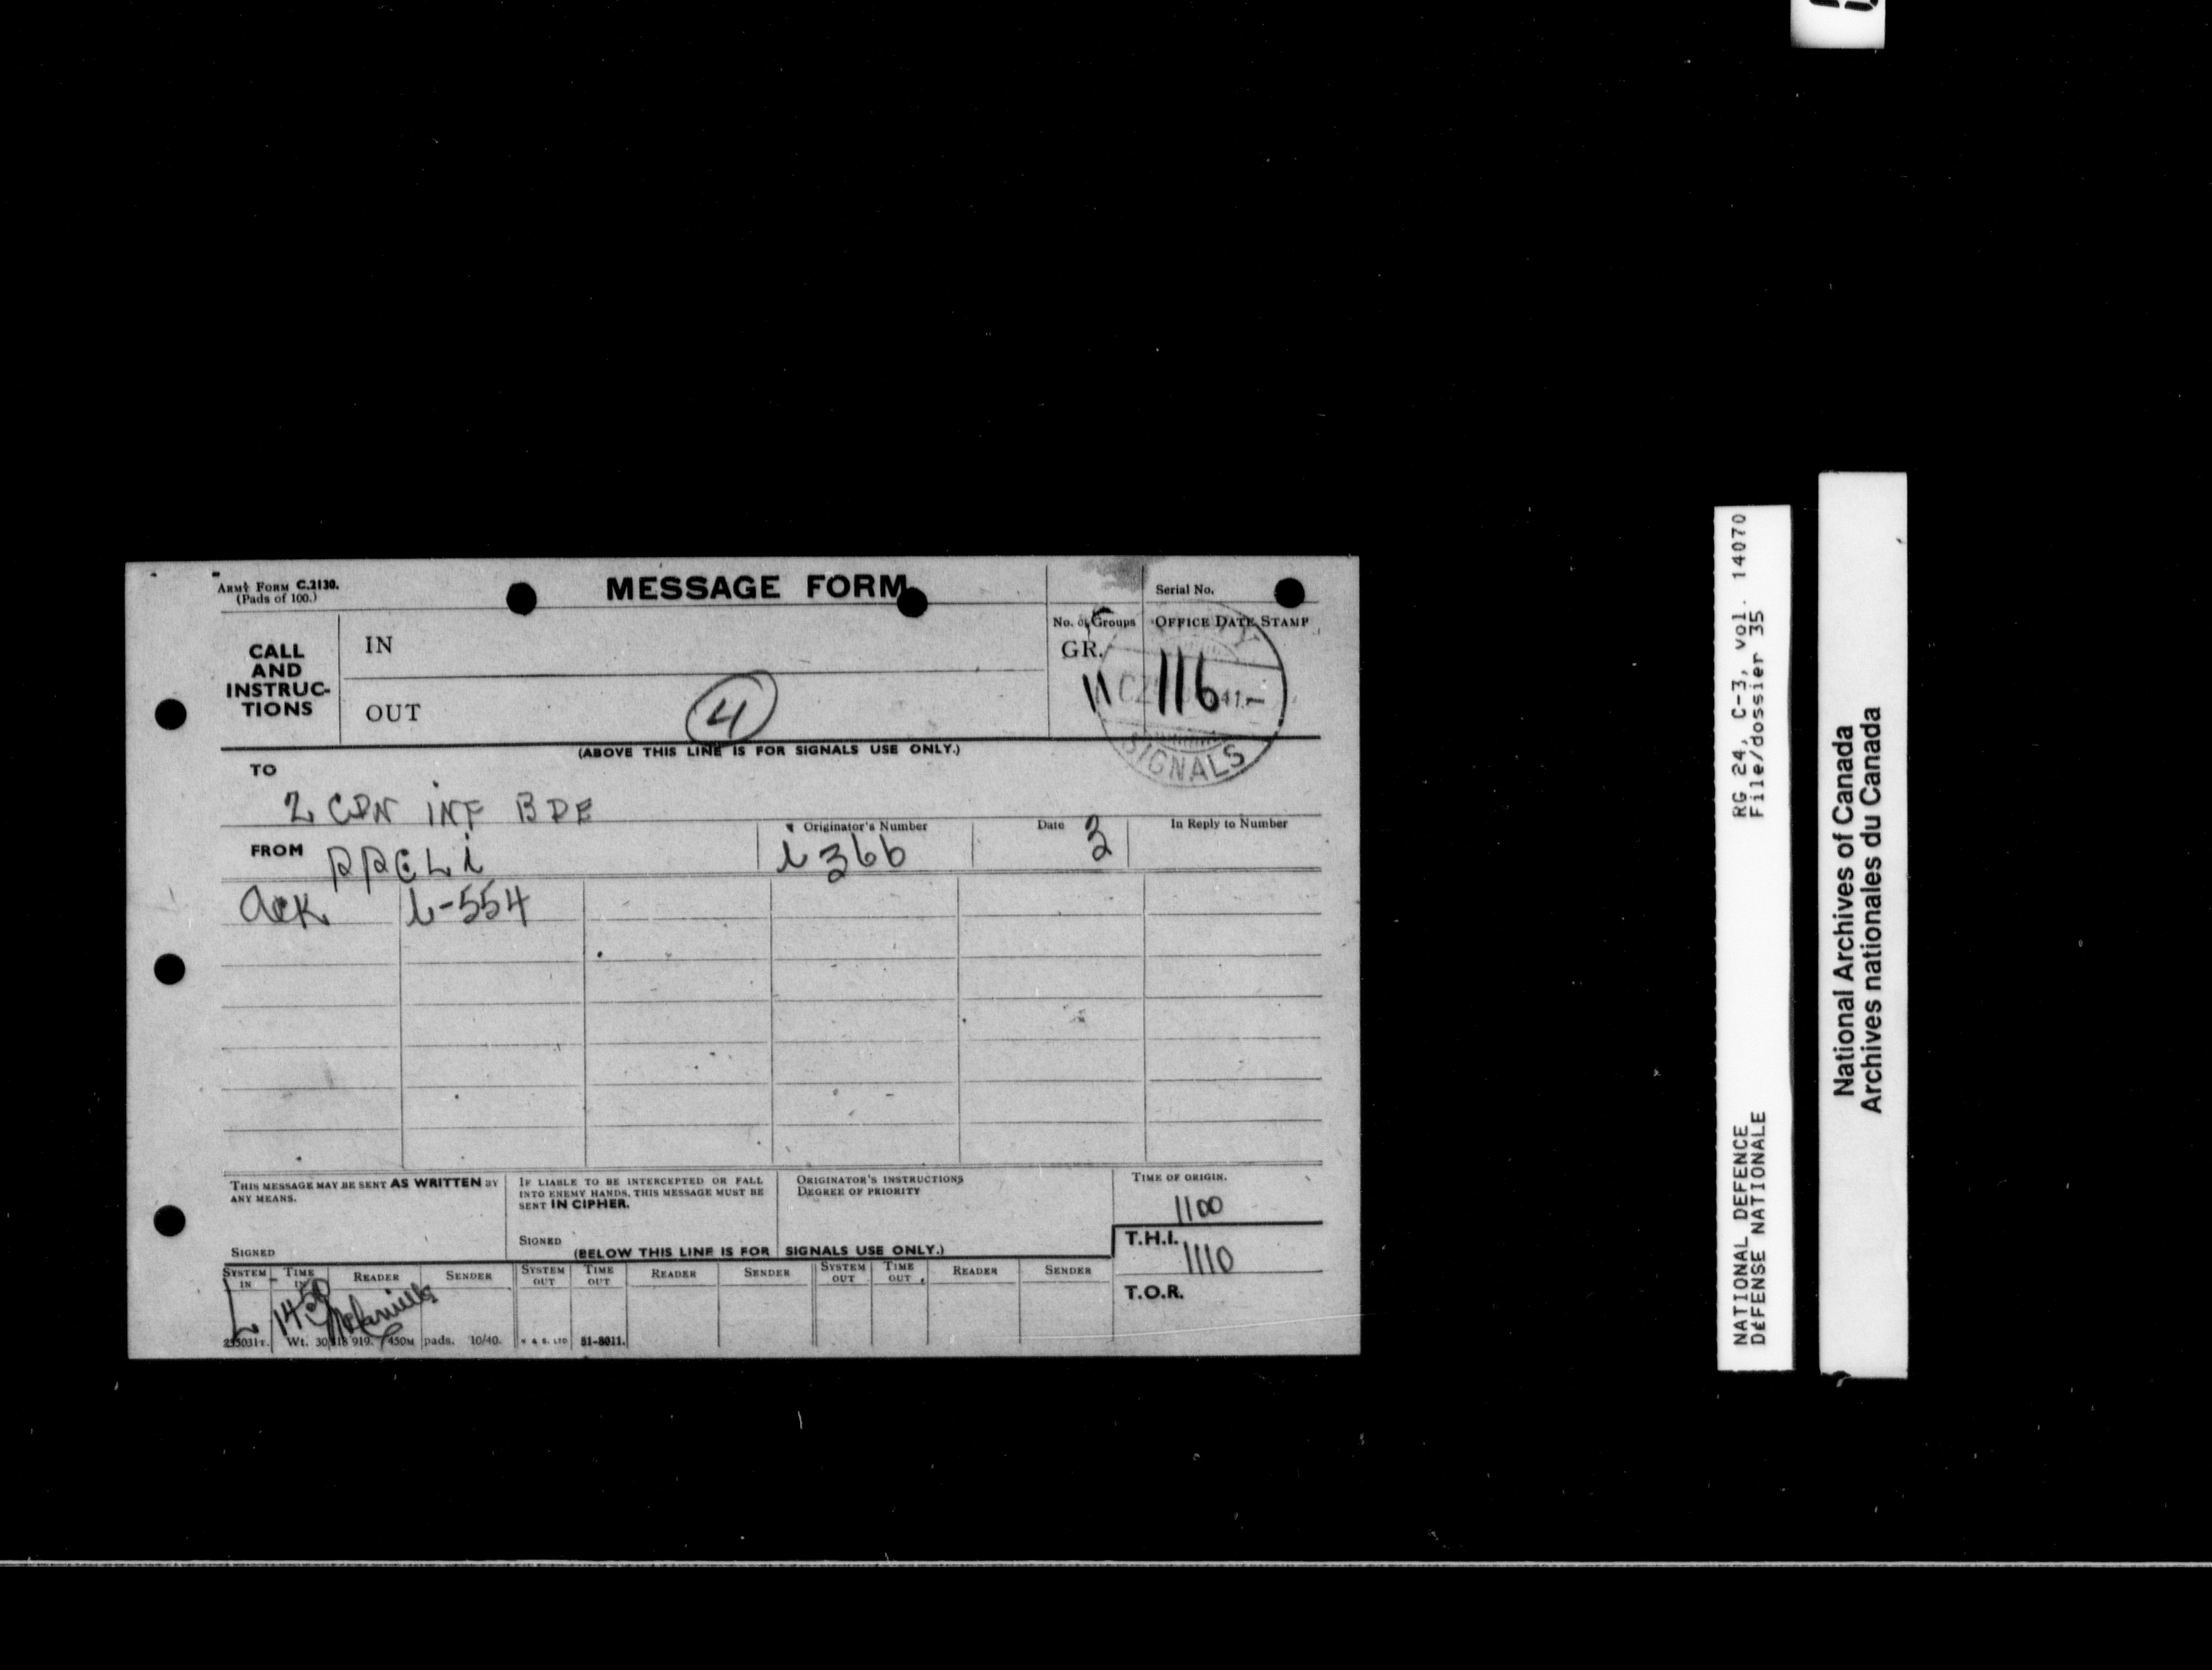 ARMY FORM C.2130.
(Pads of 100.)
MESSAGE FORM
Serial No.
CALL AND INSTRUC-TIONS
IN
OUT
4
No. of Groups
GR.
11
OFFICE DATE STAMP
116
41.-
SIGNALS
(ABOVE THIS LINE IS FOR SIGNALS USE ONLY.)
TO
2 CDN INF BDE
FROM PPCLi
Originator's Number
Date 3
In Reply to Number
Ack
THIS MESSAGE MAY BE SENT AS WRITTEN BY ANY MEANS.
SIGNED
IF LIABLE TO BE INTERCEPTED OR FALL INTO ENEMY HANDS, THIS MESSAGE MUST BE SENT IN CIPHER.
SIGNED
ORIGINATOR'S INSTRUCTIONS
DEGREE OF PRIORITY
TIME OF ORIGIN.
1100
T.H.I. 1110
T.O.R.
(BELOW THIS LINE IS FOR SIGNALS USE ONLY.)
SYSTEM IN
TIME IN
READER
SENDER
SYSTEM OUT
TIME OUT
READER
SENDER
SYSTEM OUT
TIME OUT
READER
SENDER
pads. 10/40.
51-8011.
RG 24, C-3, vol. 14070
File/dossier 35
NATIONAL DEFENCE
DéFENSE NATIONALE
National Archives of Canada
Archives nationales du Canada